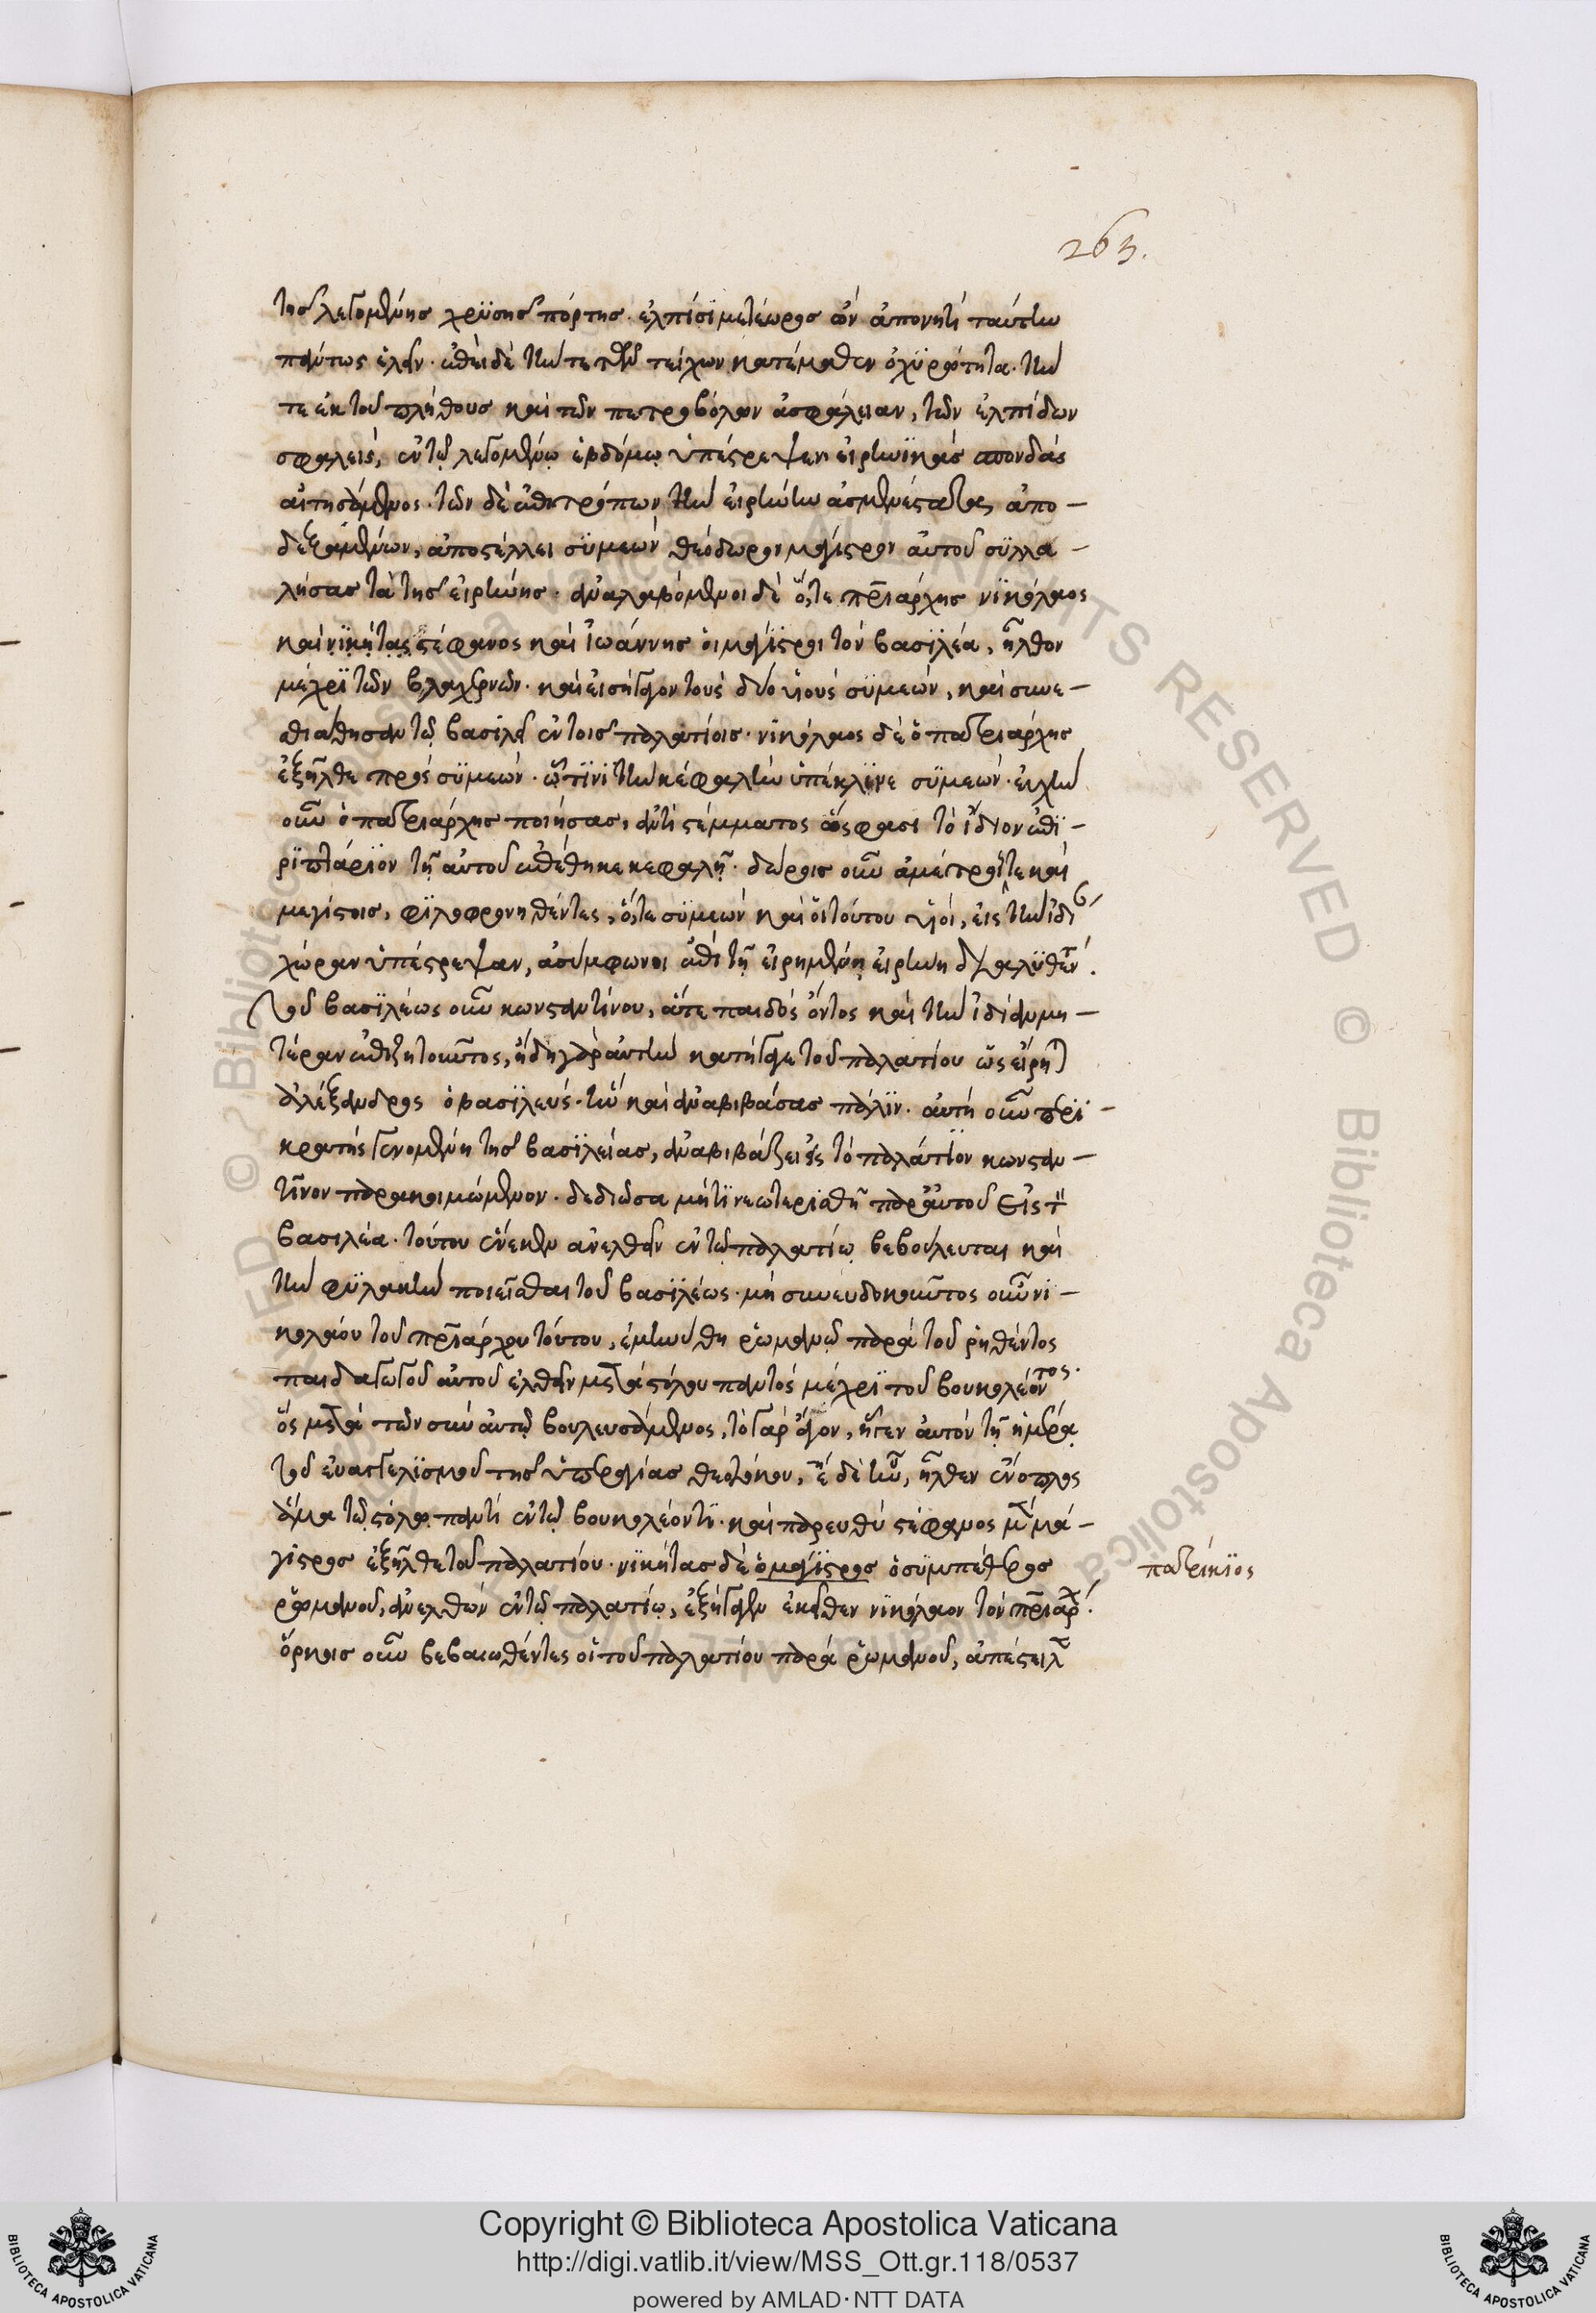 263.
τῆς λεγομένης χρϋσῆς πόρτης. ἐλπίσϊ μετέωρος ὢν ἀπονητὶ ταύτην
πάντως ἑλεῖν. ἐπεὶ δὲ τὴν τε τῶν τειχῶν κατέμαθεν ὀχϋρότητα. τὴν
τε ἐκ τοῦ πλήθους καὶ τῶν πετροβόλων ἀσφάλειαν, τῶν ἐλπίδων
σφαλεὶς, ἐν τῷ λεγομένῳ ἑβδόμῳ ὑπέστρεψεν εἰρηνϊκὰς σπονδὰς
αἰτησάμενος. τῶν δὲ ἐπιτρόπων τὴν εἰρήνην ἀσμενέστατα ἀπο-
δεξαμένων, ἀποστέλλει σϋμεὼν θεόδωρον μάγιστρον αὐτοῦ σϋλλα-
λήσας τὰ τῆς εἰρήνης. ἀναλαβόμενοι δὲ ὅ,τε πριάρχης νϊκόλαος
καὶ νϊκήτας στέφανος καὶ ἰωάννης οἱ μάγϊστροι τὸν βασϊλέα, ἦλθον
μέχρϊ τῶν βλαχερνῶν. καὶ εἰσήγαγον τοὺς δύο υἱοὺς σϋμεὼν, καὶ συνε-
στιάθησαν τῷ βασιλεῖ ἐν τοῖς παλατίοις. νικόλαος δὲ ὁ πατριάρχης
ἐξῆλθε πρὸς σϋμεών. ᾧτϊνϊ τὴν κεφαλὴν ὑπέκλϊνε σϋμεών. εὐχὴν
οὖν ὁ πατριάρχης ποιήσας, ἀντὶ στέμματος ὥς φασι τὸ ἴδιον ἐπϊ-
ρϊπτάρϊον τῇ αὐτοῦ ἐπέθηκε κεφαλῇ. δώροις οὖν ἀμέτροις τε καὶ
μεγίστοις, φϊλοφρονηθέντες, ὅ,τε σϋμεὼν καὶ οἱ τούτου υἱοὶ, εἰς τὴν ἰδί
χώραν ὑπέστρεψαν, ἀσύμφωνοι ἐπὶ τῇ εἰρημένῃ εἰρήνῃ διαλϋθέν.
τοῦ βασϊλέως οὖν κωνσταντίνου, ἅτε παιδὸς ὄντος καὶ τὴν ἰδίαν μη-
τέραν ἐπιζητοῦντος, ἤδη γὰρ αὐτὴν κατήγαγε τοῦ παλατίου ὡς εἴρη
ἀλέξανδρος ὁ βασϊλεύς. ἦν καὶ ἀναβιβάσας πάλϊν. αὐτὴ οὖν περϊ-
κρατὴς γενομένη τῆς βασϊλείας, ἀναβιβάζει εἰς τὸ παλάτϊον κωνσταν-
τῖνον παρακοιμώμενον. δεδιῶσα μήτϊ νεωτερϊσθῇ παρ' αὐτοῦ εἰς τ
βασιλέα. τούτου ἕνεκεν ἀνελθεῖν ἐν τῷ παλατίῳ βεβούλευται καὶ
τὴν φϋλακὴν ποιεῖσθαι τοῦ βασϊλέως. μὴ συνευδοκοῦντος οὖν νι-
κολάου τοῦ πριάρχου τούτου, ἐμηνύθη ῥωμανῷ παρὰ τοῦ ῥηθέντος
παιδαγωγοῦ αὐτοῦ ἐλθεῖν μετὰ στόλου παντὸς μέχρϊ τοῦ βουκολέοντος.
ὃς μετὰ τῶν σὺν αὐτῷ βουλευσάμενος, τὸ γὰρ ἅγιον, ἦγεν αὐτὸν τῇ ἡμέρᾳ
τοῦ εὐαγγελϊσμοῦ τῆς ὑπεραγίας θεοτόκου, ἦλθεν ἔνοπλος
ἅμα τῷ στόλῳ παντὶ ἐν τῷ βουκολέοντϊ. καὶ παρευθὺ στέφανος μὲν μά-
γιστρος ἐξῆλθε τοῦ παλατίου. νϊκήτας δὲ ὁ μάγϊστρος ὁ σϋμπέθερος
ῥωμανοῦ, ἀνελθὼν ἐν τῷ παλατίῳ, ἐξήγαγεν ἐκεῖθεν νϊκόλαον τὸν πριάρ.
ὅρκοις οὖν βεβαιωθέντες οἱ τοῦ παλατίου παρὰ ῥωμανοῦ, ἀπέστειλ
πατρίκϊος
ALL RIGHTS RESERVED © Biblioteca Apostolica Vaticana
Copyright © Biblioteca Apostolica Vaticana
http://digi.vatlib.it/view/MSS_Ott.gr.118/0537
powered by AMLAD·NTT DATA
BIBLIOTECA APOSTOLICA VATICANA
BIBLIOTECA APOSTOLICA VATICANA